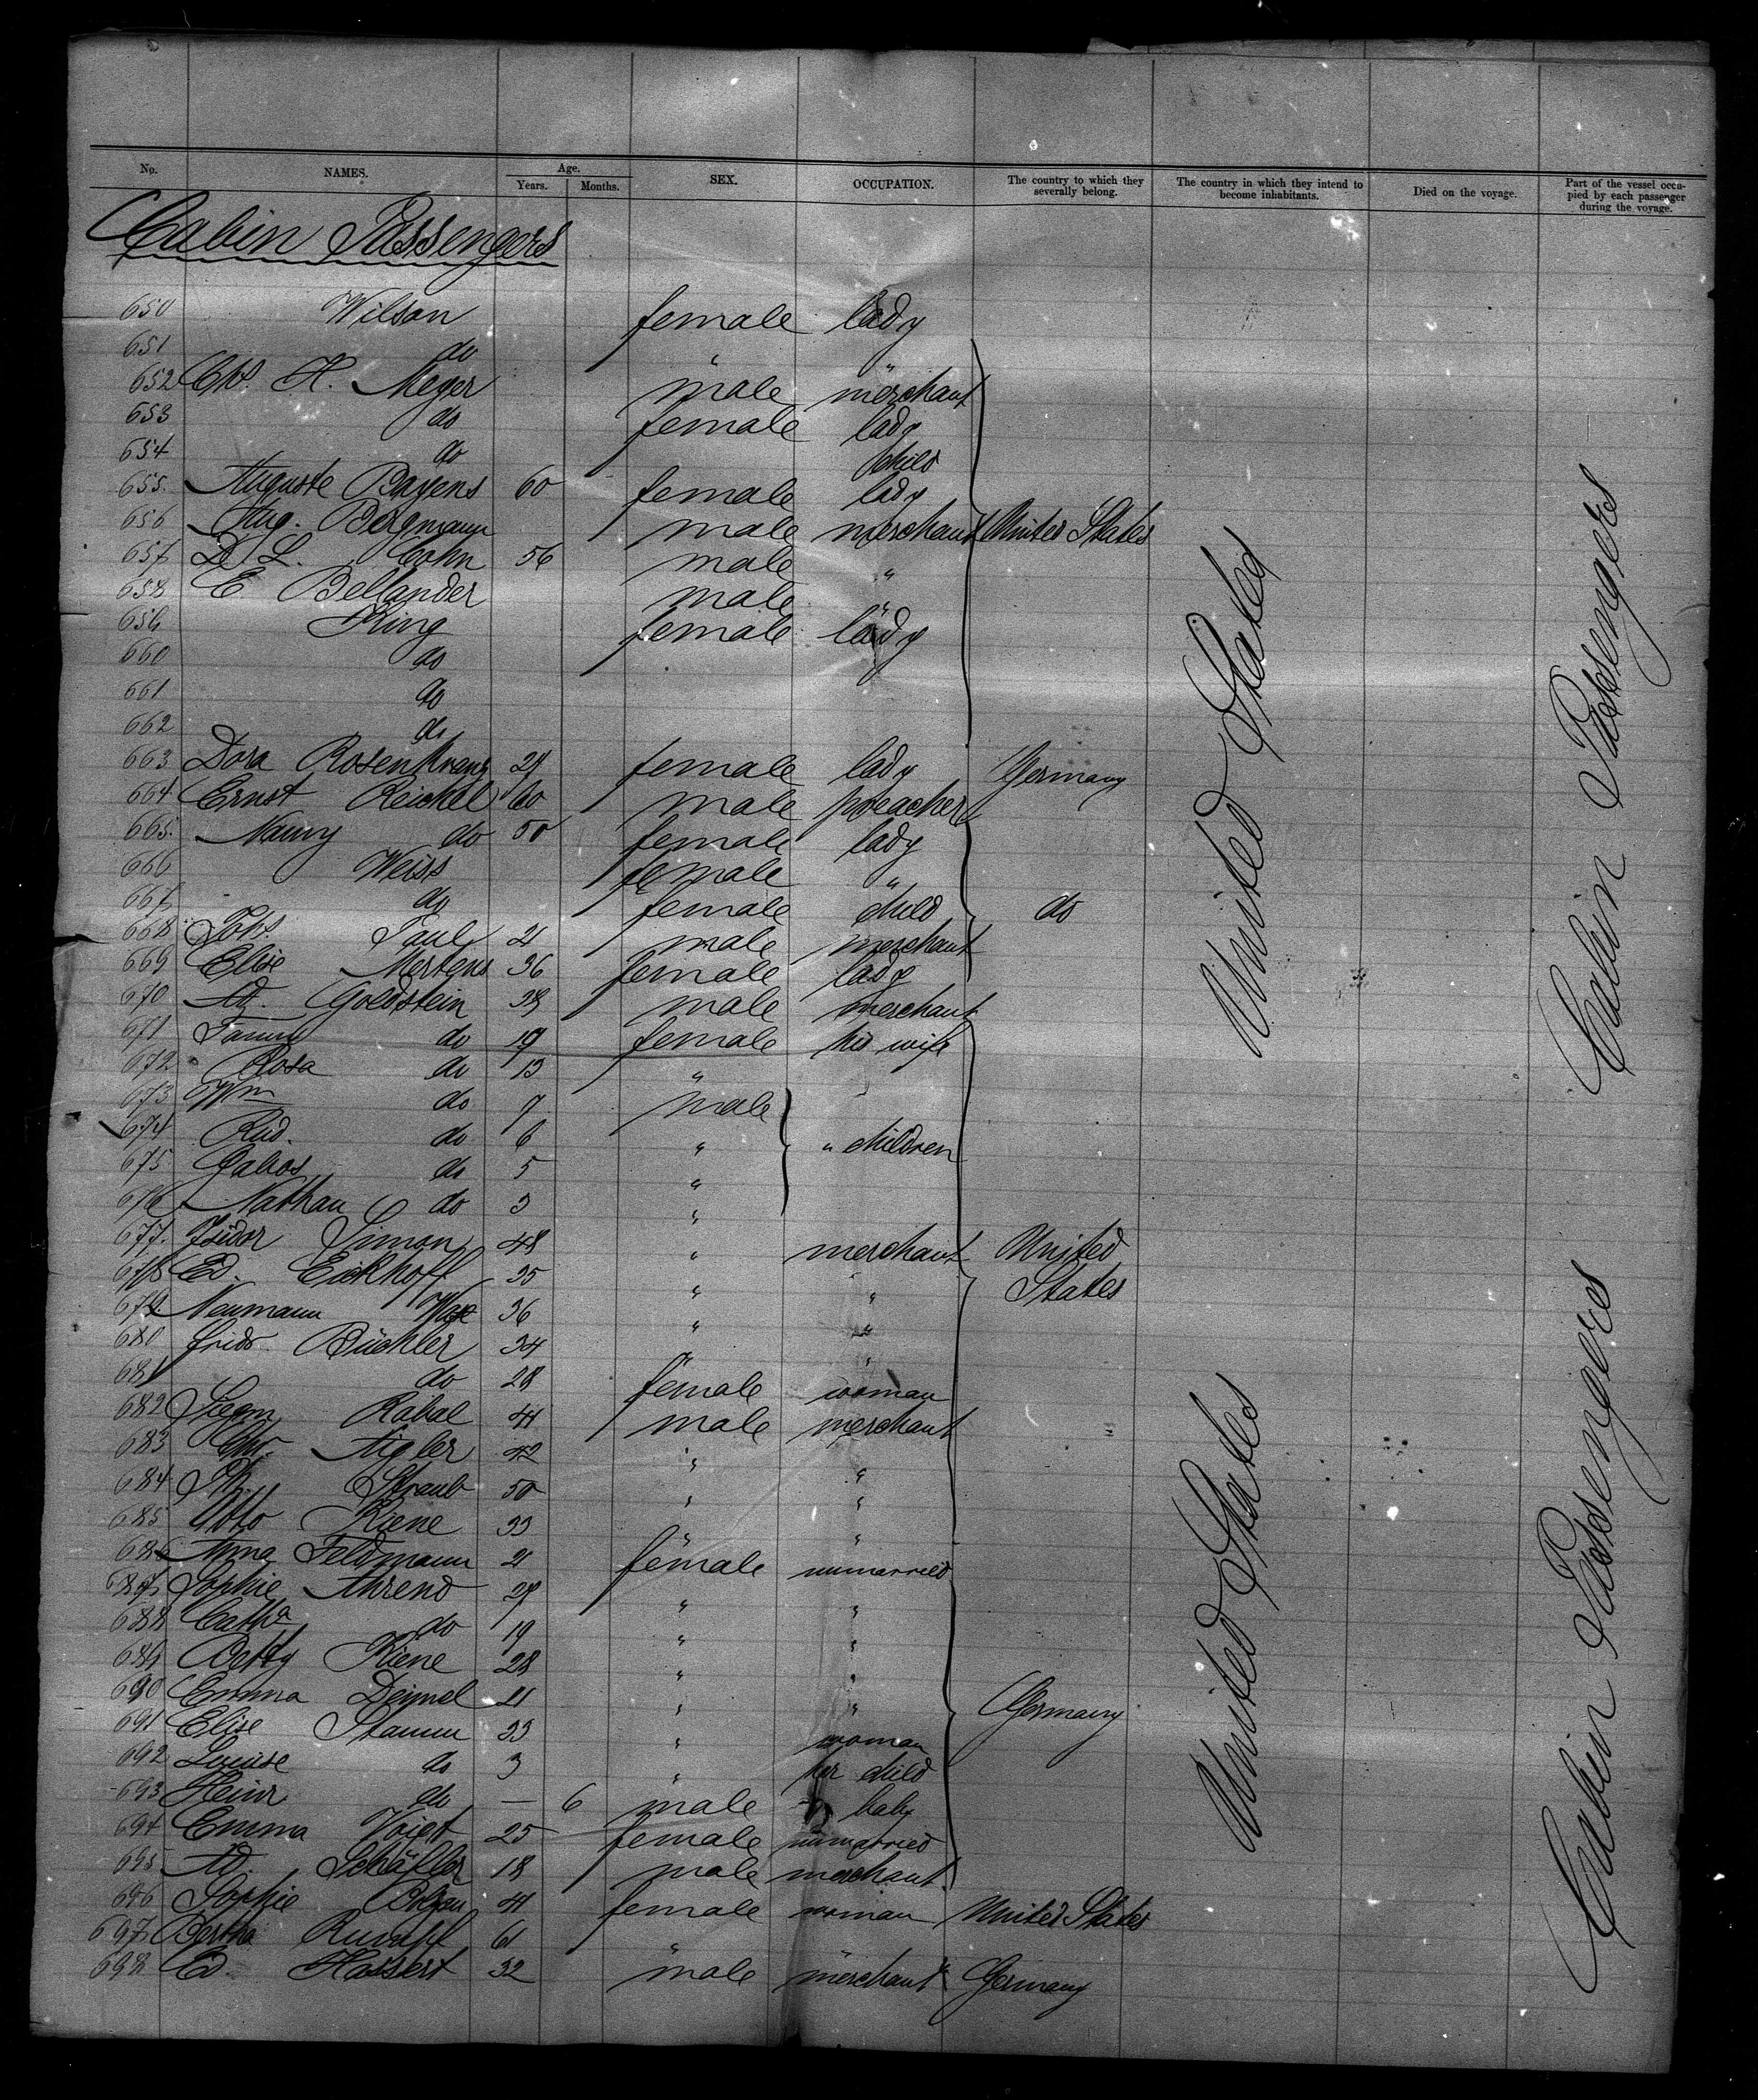 No. NAMES. Age. Years. Months. SEX. OCCUPATION. The country to which they severally belong. The country in which they intend to become inhabitants. Died on the voyage. Part of the vessel occupied by each passenger during the voyage.
Cabin Passengers
650 Wilson female lady
651 do " "
652 Chs. H. Meyer male merchant
653 do female lady
654 do child
655. Auguste Bayens 60 female lady
656 Aug. Bergmann male merchant United States
657 D. L. Cohn 56 male "
658 E Bellander male "
659 King female lady
660 do
661 do
662 do
663 Dora Rosenkranz 27 female lady Germany
664 Ernst Reichel 60 male preacher
665. Nanny do 50 female lady
666 Weiss female "
667 do female child do
668 Johs. Paul 21 male merchant
669 Elise Mertens 36 female lady
670 Ad. Goldstein 38 male merchant
671 do 19 female his wife
672 Rosa do 13 "
673 Wm do 7 male
674 Rud. do 6 " " children
675 do 5 "
676 Nathan do 3 "
677. Isidor Simon 48 " merchant United
678 Ed. Eickhoff 35 " " States
679. Neumann 36 " "
680 Frido. Büchler 34 " "
681 do 28 female woman
682 Siegm. Rabal 41 male merchant
683 Chr. Aigler 42 " "
684 Ph. Straub 50 " "
685 Otto Kiene 33 " "
686 Anna Feldmann 21 female unmarried
687 Sophie Ahrend 27 " "
688 Catha do 19 " "
689 Betty Kiene 28 " "
690 Emma Deimel 21 " " Germany
691 Elise Stamm 33 " woman
692 Louise do 3 " her child
693 Heinr do — 6 male " baby
694 Emma Voigt 25 female unmarried
695 Ad. Schäfler 18 male merchant
696 Sophie 41 female woman United States
697 Bertha 61 "
698 Ed. Hassert 32 male merchant Germany
United States
United States
Cabin Passengers
Cabin Passengers